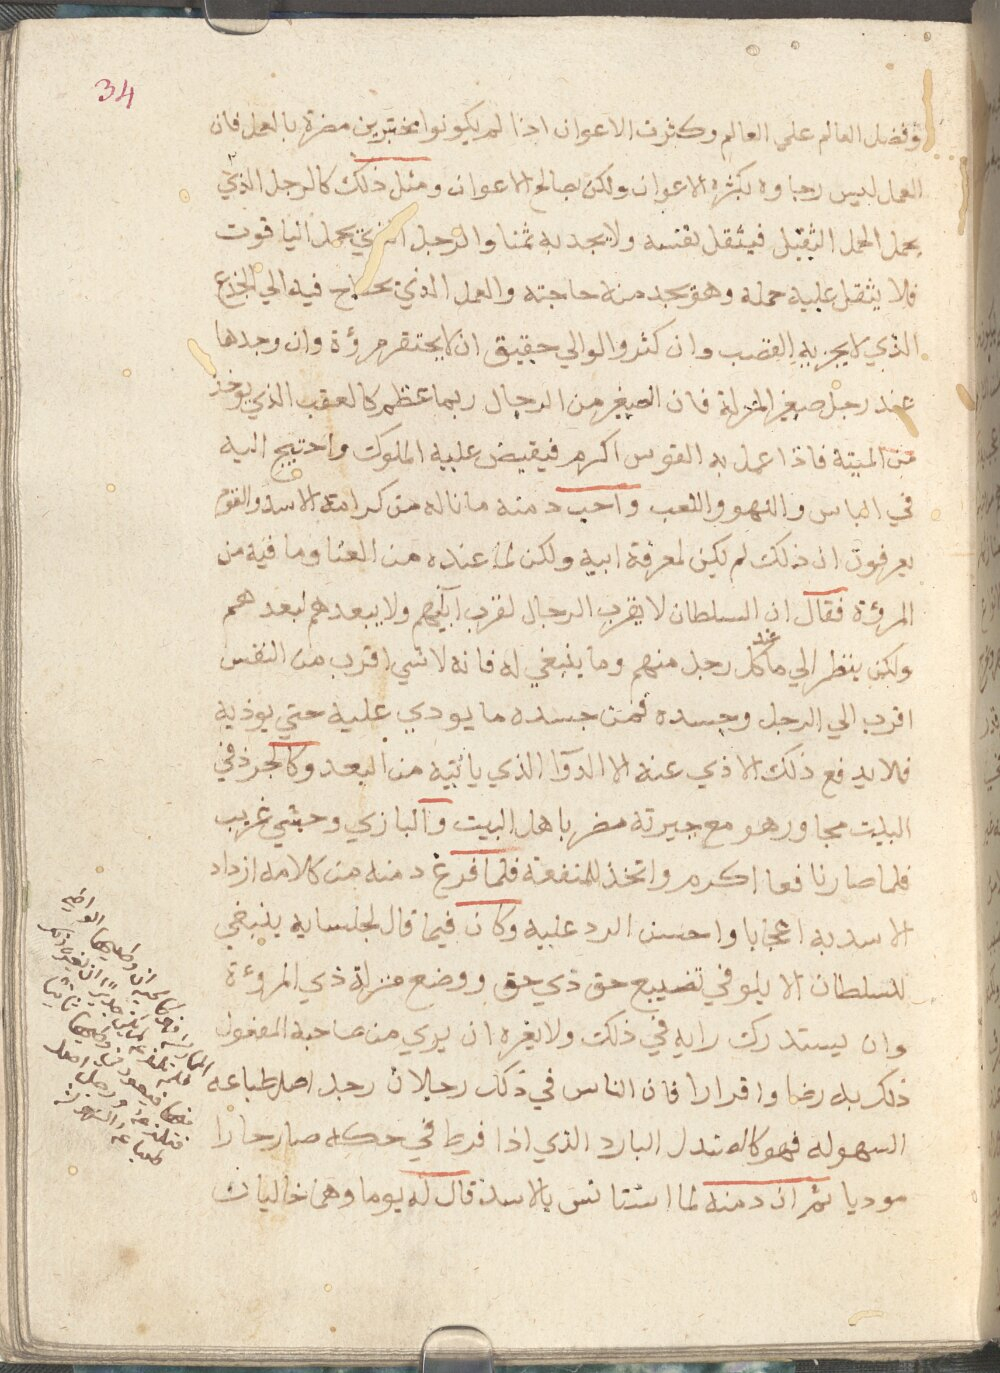 34
وفضل العالم علي العالم وكثرت الاعوان اذا لم يكونوا مختبرين مضرة بالعمل فان
العمل ليس رجاوه بكثرة الاعوان ولكن بصالح الاعوان ومثل ذلك كالرجل الذي
يحمل الحمل الثقيل فيثقل لنفسه ولا يجد به ثمنا والرجل الذي يحمل الياقوت
فلا يثقل عليه حمله وهو يجد منه حاجته والعمل الذي يحتاج فيه الي الجذع
الذي لا يجزيه القصب وان كثر والوالي حقيق ان لا يحتقر مرؤة وان وجدها
عند رجل صغير المنزلة فان الصغير من الرجال ربما عظم كالعقب الذي يوخذ
من الميتة فاذا عمل به القوس اكرم فيقبض عليه الملوك واحتيج اليه
في الباس واللهو واللعب واحب دمنه ما ناله من كرامة الاسد والقوم
يعرفون ان ذلك لم يكن لمعرفة ابيه ولكن لما عنده من الغنا وما فيه من
المرؤة فقال ان السلطان لا يقرب الرجال لقرب ابآئهم ولا يبعدهم لبعدهم
ولكن ينظر الي ما عند كل رجل منهم وما ينبغي له فانه لا شي اقرب من النفس
اقرب الي الرجل وجسده فمن جسده ما يودي عليه حتي يوذيه
فلا يدفع ذلك الاذي عنه الا الدوآ الذي ياتيه من البعد وكالجرذ في
البيت مجاور هو مع جيرته مضر باهل البيت والبازي وحشي غريب
فلما صار نافعا اكرم واتخذ للمنفعة فلما فرغ دمنه من كلامه ازداد
الاسد به اعجابا واحسن الرد عليه وكان فيما قال لجلسايه ينبغي
للسلطان الا يلو في تضييع حق ذي حق ووضع منزلة ذي المروءة
وان يستدرك رايه في ذلك ولا يغره ان يري من صاحبه المفعول
ذلك به رضا واقرارا فان الناس في ذلك رجلان رجل اصل طباعه
السهوله فهو كالصندل البارد الذي اذا فرط في حكه صار حارا
موديا ثم ان دمنه لما استانس بالاسد قال له يوما وهما خاليان